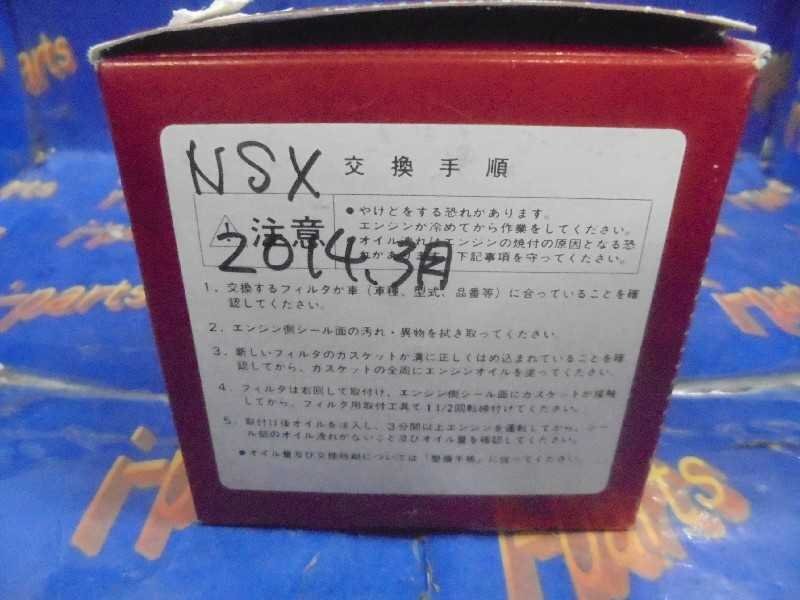 NSX 交換手順
注意
●やけどをする恐れがあります。
エンジンが冷めてから作業をしてください。
●オイル漏れはエンジンの焼付の原因となる恐
れがあります。下記事項を守ってください。
2014、3月
1．交換するフィルタが車（車種、型式、品番等）に合っていることを確
認してください。
2．エンジン側シール面の汚れ・異物を拭き取ってください。
3．新しいフィルタのガスケットが溝に正しくはめ込まれていることを確
認してから、ガスケットの全周にエンジンオイルを塗ってください。
4．フィルタは右回して取付け、エンジン側シール面にガスケットが接触
してから、フィルタ用取付工具で1 1/2回転締付けてください。
5．取付け後オイルを注入し、3分間以上エンジンを運転してから、シー
ル部のオイル漏れがないこと及びオイル量を確認してください。
●オイル量及び交換時期については「整備手帳」に従ってください。
i-parts
i-parts
i-parts